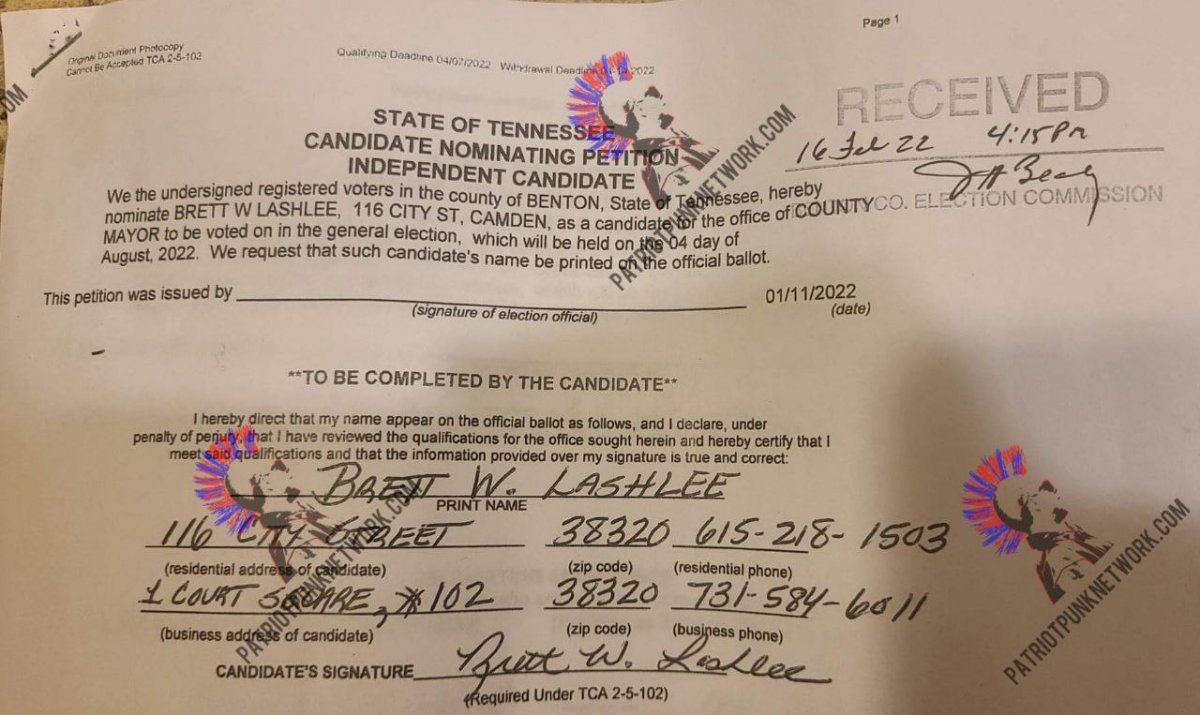 Page 1
Original Document Photocopy
Cannot Be Accepted TCA 2-5-102
Qualifying Deadline 04/07/2022 Withdrawal Deadline 2022
RECEIVED
16 Feb 22 4:15 Pm
CO. ELECTION COMMISSION
STATE OF TENNESSEE
CANDIDATE NOMINATING PETITION
INDEPENDENT CANDIDATE
We the undersigned registered voters in the county of BENTON, State of Tennessee, hereby
nominate BRETT W LASHLEE, 116 CITY ST, CAMDEN, as a candidate for the office of COUNTY
MAYOR to be voted on in the general election, which will be held on the 04 day of
August, 2022. We request that such candidate's name be printed on the official ballot.
This petition was issued by 01/11/2022
(signature of election official) (date)
**TO BE COMPLETED BY THE CANDIDATE**
I hereby direct that my name appear on the official ballot as follows, and I declare, under
penalty of perjury, that I have reviewed the qualifications for the office sought herein and hereby certify that I
meet said qualifications and that the information provided over my signature is true and correct:
BRETT W. LASHLEE
PRINT NAME
116 CITY STREET 38320 615-218-1503
(residential address of candidate) (zip code) (residential phone)
1 COURT SQUARE, #102 38320 731-584-6011
(business address of candidate) (zip code) (business phone)
CANDIDATE'S SIGNATURE Brett W. Lashlee
(Required Under TCA 2-5-102)
COM
PATRIOTPUNKNETWORK.COM
PATRIOTPUNKNETWORK.COM
PATRIOTPUNKNETWORK.COM